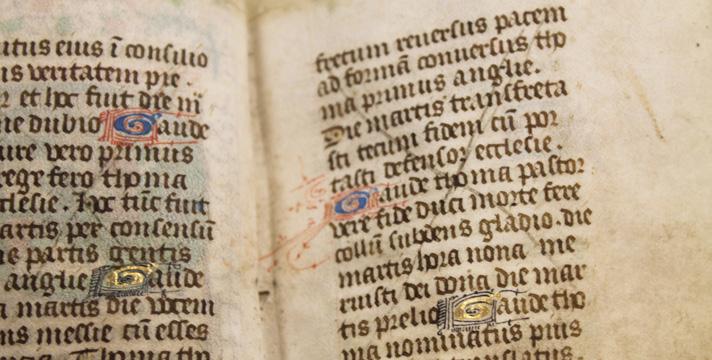 utus eius ī consilio
is veritatem pie .
et hoc fiut die
ne dubio Gaude
vero primus
rege fero thoma
cclesie . hoc tūc fiut
artis per consensū
is partis gentis
anglie Gaude
a martis die vocem
ns messie cū esses
Thoma
fretum reversus pacem
ad formā conversus
ma primus anglie.
Die martis transfreta
sti tecum fidem cū por
tasti defensor ecclesie.
Gaude thoma pastor
vere fide duci morte fere
collū subdens gladio. die
martis hora nona me
ruisti dei dona die mar
tis prelio Gaude tho
ma nominatus pius